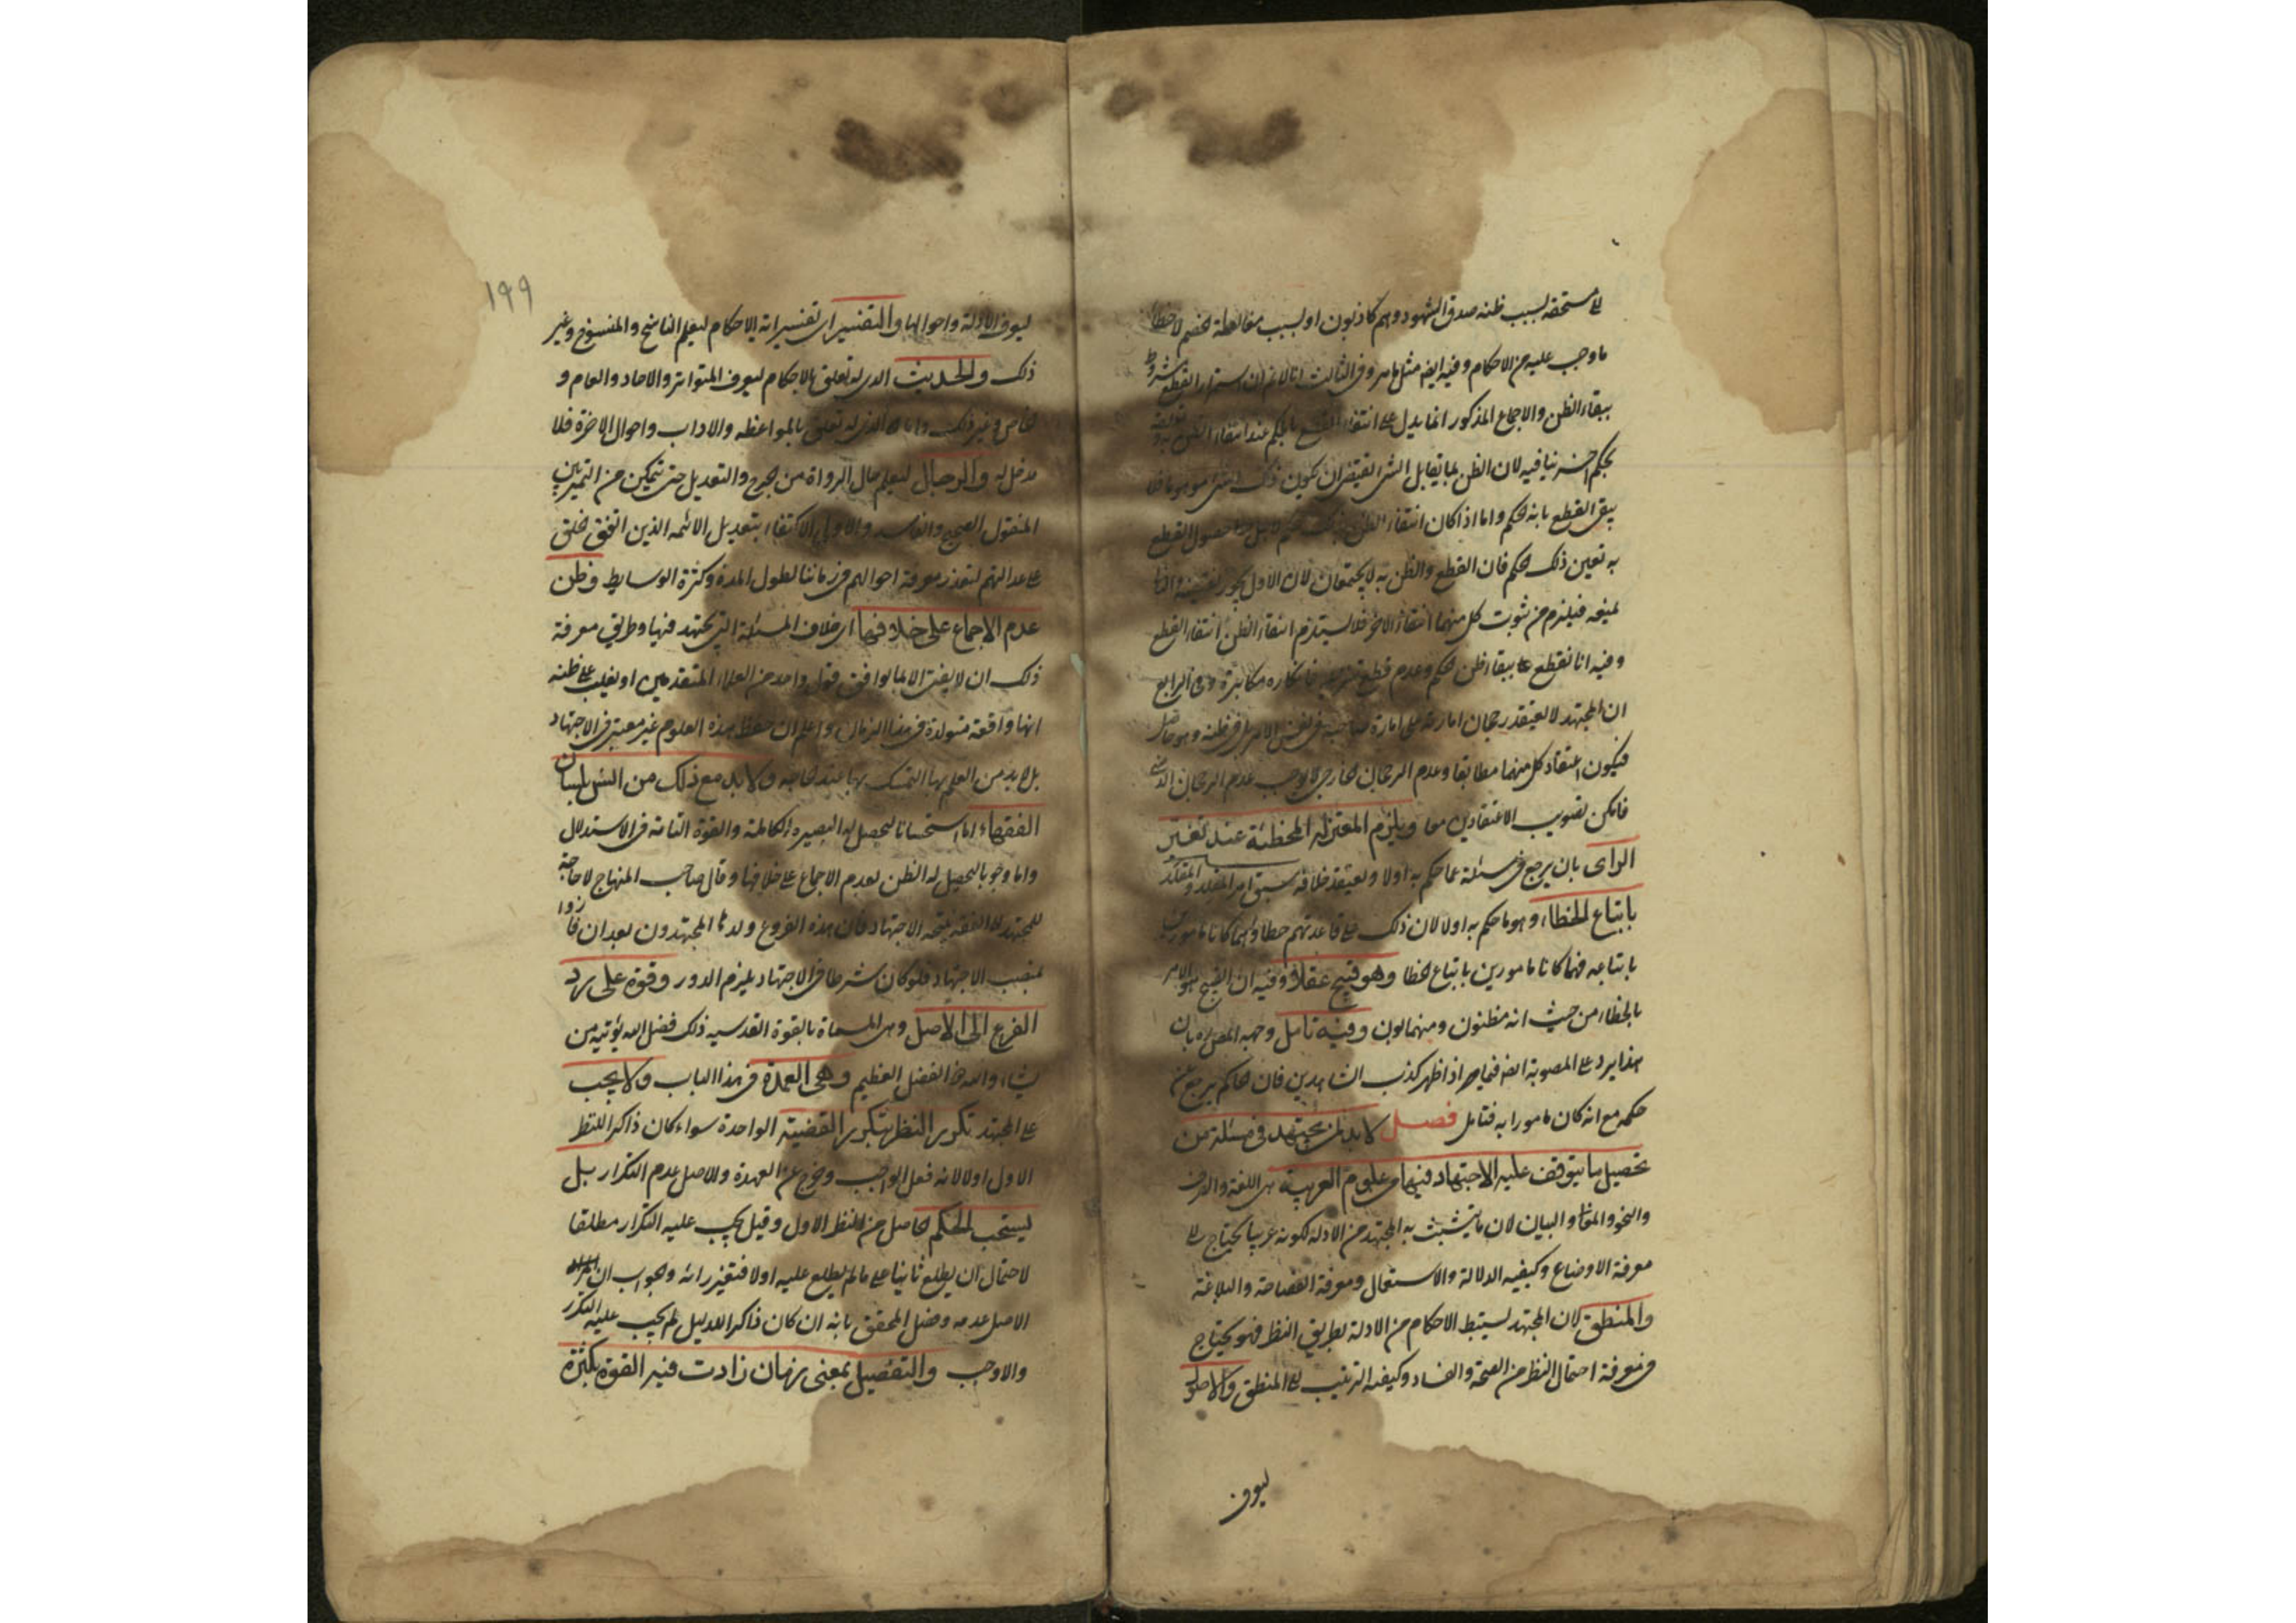 مستحقه بسبب ظنه صدق الشهود وهم كاذبون او بسبب مغالطة الخصم لا خطأ
ما وجب عليه من الاحكام وفيه ايضا مثل ما مر وفى الثالث انا لا نم ان استمرار القطع مشروط
ببقاء الظن والاجماع المذكور انما يدل على انتفاء القطع بالحكم عند انتفاء الظن به
بحكم اخر ينافيه لان الظن بما يقابل الشئ يقتضى ان يكون ذلك الشئ موهوما فلا
يبقى القطع بانه الحكم واما اذا كان انتفاء الظن حصول القطع
به تعين ذلك الحكم فان القطع والظن به لا يجتمعان لان الاول يجوز نقيضه والثانى
يمنعه فيلزم من ثبوت كل منهما انتفاء الاخر فلا يستلزم انتفاء الظن انتفاء القطع
وفيه انا نقطع ببقاء ظن الحكم وعدم قطع فانكاره مكابرة وفى الرابع
ان المجتهد لا يعتقد رجحان امارته على امارة صاحبه فى نفس الامر بل فى ظنه وهو حاصل
فيكون اعتقاد كل منهما مطابقا وعدم الرجحان الخارجى لا يوجب عدم الرجحان الذهنى
فامكن تصويب الاعتقادين معا ويلزم المعتزلة المخطئة عند تغير
الراى بان يرجع فى مسئلة عما حكم به اولا ويعتقد خلافه سبق امر المقلد والمقلد
باتباع الخطاء وهو ما حكم به اولا لان ذلك على قاعدتهم خطاء وانهما كانا مامورين
باتباعه فهما كانا مامورين باتباع الخطا وهو قبيح عقلا وفيه ان القبيح هو الامر
بالخطاء من حيث انه مظنون وفيه تامل وجهه المص ره بان
هذا يرد على المصوبة ايضا فيما اذا ظهر كذب الشاهدين فان الحاكم يرجع عن
حكمه مع انه كان مامورا به فتامل فصل لابد لمن يجتهد فى مسئلة من
تحصيل ما يتوقف عليه الاجتهاد فيها من علوم العربية من اللغة والصرف
والنحو والمعانى والبيان لان ما يتشبث به المجتهد من الادلة لكونه عربيا يحتاج الى
معرفة الاوضاع وكيفيه الدلالة والاستعمال ومعرفة الفصاحة والبلاغة
والمنطق لان المجتهد يستنبط الاحكام من الادلة بطريق النظر فهو يحتاج
فى معرفة احتمال النظر من الصحة والفساد وكيفية الترتيب الى المنطق والاصول
ليعرف
١٩٩
ليعرف الادلة واحوالها والتفسير اى تفسير اية الاحكام ليعلم الناسخ والمنسوخ وغير
ذلك والحديث الذى له تعلق بالاحكام ليعرف المتواتر والاحاد والعام و
الخاص وغير ذلك واما الذى له تعلق بالمواعظ والاداب واحوال الاخرة فلا
مدخل له والرجال ليعلم حال الرواة من الجرح والتعديل حتى يتمكن من التميز بين
المنقول الصحيح والفاسد والاولى الاكتفاء بتعديل الائمه الذين اتفق الخلق
على عدالتهم لتعذر معرفة احوالهم فى زماننا لطول المدة وكثرة الوسايط وظن
عدم الاجماع على خلافها اى خلاف المسئلة التى يجتهد فيها وطريق معرفة
ذلك ان لا يفتى الا بما يوافق قول واحد من العلماء المتقدمين او يغلب على ظنه
انها واقعة متولدة فى هذا الزمان واعلم ان حفظ هذه العلوم غير معتبر فى الاجتهاد
بل لابد من العلم بها التمسك بها عند الحاجه ولابد مع ذلك من انس بلسان
الفقهاء اما استحسانا ليحصل له البصيرة الكاملة والقوة التامة فى الاستدلال
واما وجوبا لتحصيل له الظن بعدم الاجماع على خلافها وقال صاحب المنهاج لا حاجة
للمجتهد الى الفقه نتيجة الاجتهاد فان هذه الفروع ولدها المجتهدون بعد ان فازوا
بمنصب الاجتهاد فلو كان شرطا فى الاجتهاد يلزم الدور وقوة على رد
الفرع الى الاصل وهى المسماة بالقوة القدسيه ذلك فضل الله يؤتيه من
يشاء والله ذو الفضل العظيم وهى العمدة فى هذا الباب ولا يجب
على المجتهد تكرير النظر بتكرير القضية الواحدة سواء كان ذاكرا للنظر
الاول اولا لانه فعل الواجب وخرج عن العهدة والاصل عدم التكرار بل
يستحب الحكم حاصل من النظر الاول وقيل يجب عليه التكرار مطلقا
لاحتمال ان يطلع ثانيا على ما لم يطلع عليه اولا فتغير رائه والجواب ان
الاصل عدمه وفصل المحقق بانه ان كان ذاكرا للدليل لم يجب عليه التكرر
والا وجب والتفصيل بمعنى زمان زادت فيه القوة بكثرة